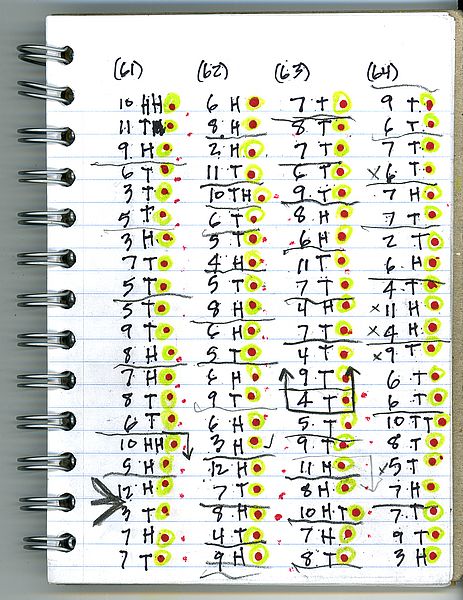 (61) (62) (63) (64)
10 HH 6 H 7 T 9 T
11 T 8 H 8 T 6 T
9 H 2 H 7 T 7 T
6 T 11 T 6 T x 6 T
3 T 10 TH 9 T 7 H
5 T 6 T 8 H 7 T
3 H 5 T 6 H 2 T
7 T 4 H 11 T 6 H
5 T 5 T 7 T 4 T
5 T 8 H 4 H x 11 H
9 T 6 H 7 T x 4 H
8 H 5 T 4 T x 9 T
7 H 6 H 9 T 6 T
8 T 9 T 4 T 6 T
6 T 6 H 5 T 10 TT
10 HH 3 H 9 T 8 T
5 H 12 H 11 H x 5 T
12 H 7 T 8 H 7 H
3 T 8 H 10 HT 7 T
7 H 4 T 7 H 9 T
7 T 9 H 8 T 3 H